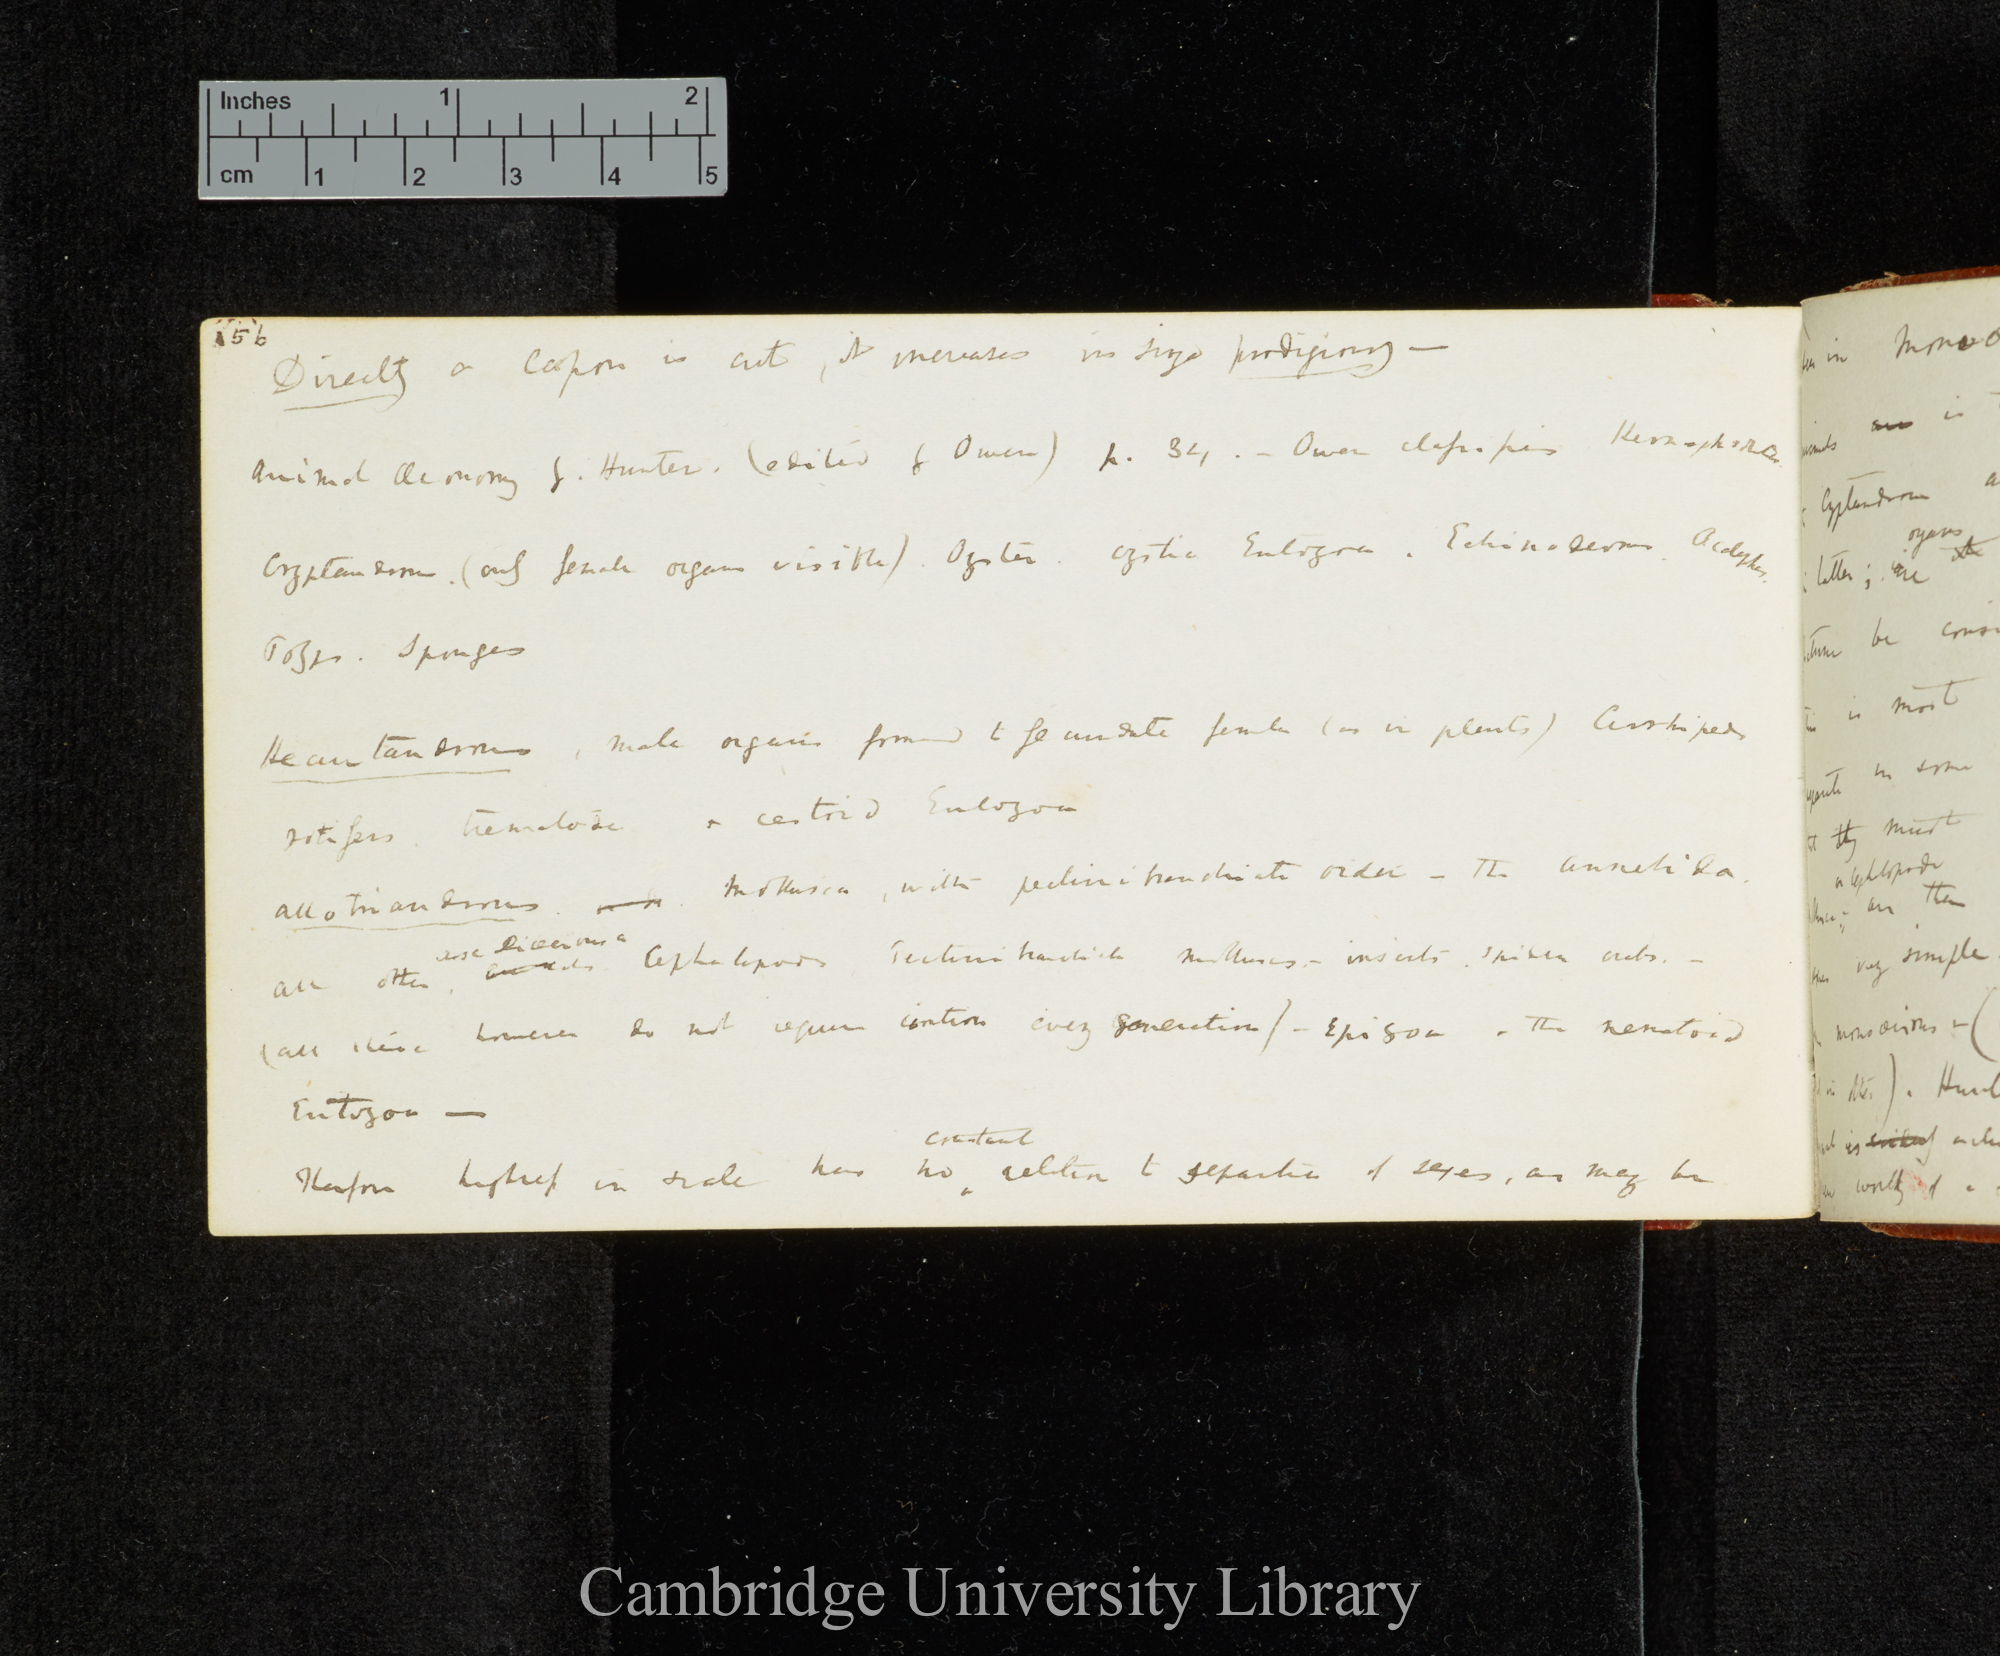 Inches 1 2
cm 1 2 3 4 5
156
Directly a Capon is cut, it increases in size prodigiously —
Animal Œconomy by. Hunter. (edited by Owen) p. 34. — Owen classifies Hermaphrodites.
Cryptandrous. (only female organs visible). Oyster. cystic Entozoa. Echinoderms. Acalephes.
Polyps. Sponges
Heautandrous, male organs formed to fecundate female (as in plants) Cirrhipeds
rotifers. trematode & cestoid Entozoa
Allotriandrous. Mollusca, with pectinibranchiate order — The annelida.
are dioecious
All other, Cephalopods Pectinibranchiate molluscs. — insects. spiders crabs. —
(all these however do not require coition every generation) — Epizoa & the nematoid
Entozoa —
constant
Therefore highness in scale has no relation to separation of sexes, as may be
in mono
is
Cryptandrous
organs
latter; are the
be
is most
in some
they must
Cephalopods
are then
very simple
monoecious — (
). Hunt
worthy of a
Cambridge University Library